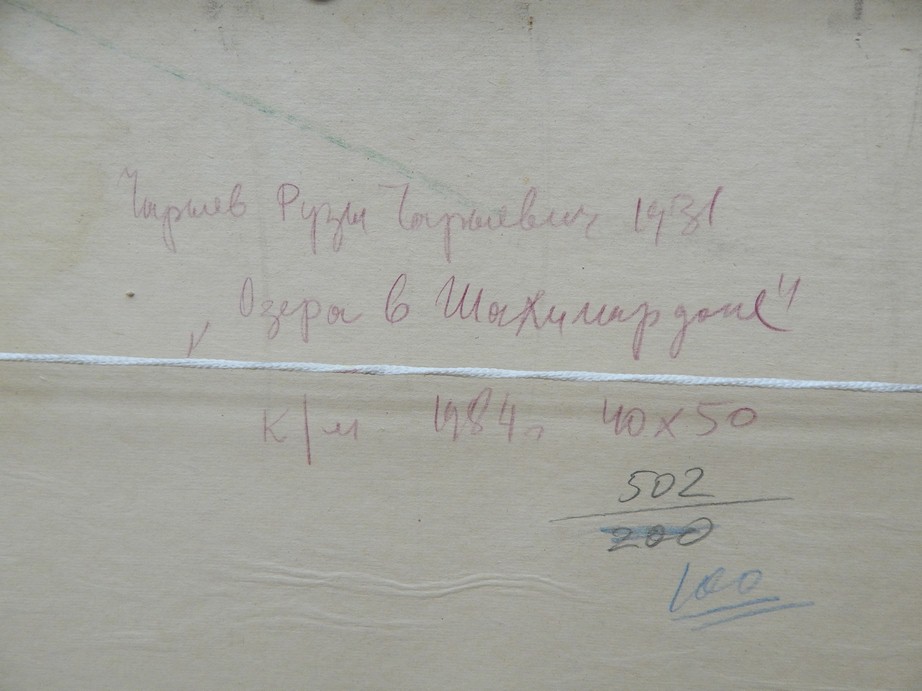 Чарыев Рузы Чарыевич 1931
Озера в Шахимардане"
к/м 1984г 40х50
502
200
100